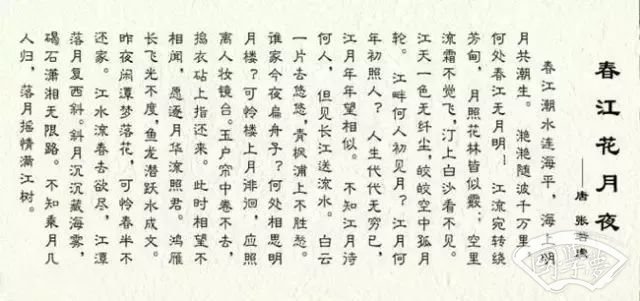 春江花月夜
——唐 张若虚
春江潮水连海平，海上明
月共潮生。滟滟随波千万里，
何处春江无月明！江流宛转绕
芳甸，月照花林皆似霰；空里
流霜不觉飞，汀上白沙看不见。
江天一色无纤尘，皎皎空中孤月
轮。江畔何人初见月？江月何
年初照人？人生代代无穷已，
江月年年望相似。不知江月待
何人，但见长江送流水。白云
一片去悠悠，青枫浦上不胜愁。
谁家今夜扁舟子？何处相思明
月楼？可怜楼上月徘徊，应照
离人妆镜台。玉户帘中卷不去，
捣衣砧上指还来。此时相望不
相闻，愿逐月华流照君。鸿雁
长飞光不度，鱼龙潜跃水成文。
昨夜闲潭梦落花，可怜春半不
还家。江水流春去欲尽，江潭
落月复西斜。斜月沉沉藏海雾，
碣石潇湘无限路。不知乘月几
人归，落月摇情满江树。
国学梦